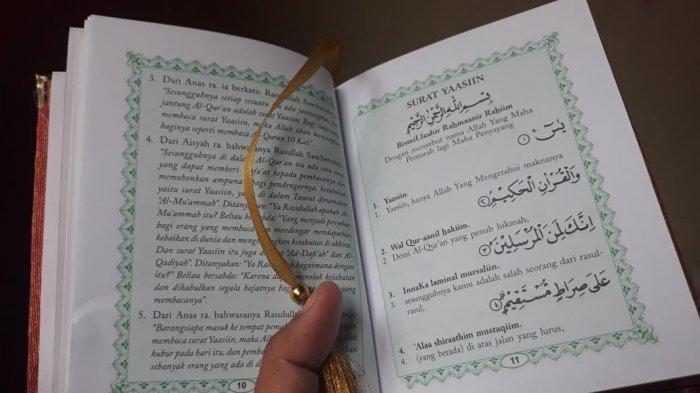 3. Dari Anas ra. ia berkata: Rasulullah Saw
"Sesungguhnya setiap sesuatu ada jantungnya
jantung Al-Qur'an adalah surat Yaasiin. Bagi siapa
membaca surat Yaasiin, maka Allah akan
baginya seperti membaca Al-Quran 10 Kali".
4. Dari Aisyah ra. bahwasanya Rasulullah Saw.
"Sesungguhnya di dalam Al-Qur'an itu ada surat
yang dapat memberi syafa'at kepada pembacanya dan
memohonkan ampunan bagi pendengarnya, ketahuilah
yaitu surat Yaasiin, yang di dalam Taurat dinamakan
"Al-Mu'ammah". Ditanyakan: "Ya Rasulullah apakah Al-
Mu'ammah itu? Beliau bersabda: "Yang menjadi penyebab
bagi orang yang membacanya mendengar mendapatkan
kebaikan di dunia dan menghilangkan ketakutan di akhirat.
Dan surat Yaasiin itu juga dinamakan "Ad-Dafi'ah" dan Al-
Qadiyah". Ditanyakan: "Ya Rasulullah bagaimana dengan
itu?" Beliau bersabda: "Karena dapat menolak kejahatan
dan dikabulkan segala hajatnya bagi orang yang
membacanya".
5. Dari Anas ra. bahwasanya Rasulullah
"Barangsiapa masuk ke tempat
membaca surat Yaasiin, maka Allah
kubur pada hari itu, dan
sebanyak orang yang ada di
10
SURAT YAASIIN
بِسْمِ اللهِ الرَّحْمٰنِ الرَّحِيْمِ
Bismillaahir Rahmaanir Rahiim
Dengan menyebut nama Allah Yang Maha
Pemurah lagi Maha Penyayang
يٰسۤ ۝١
1. Yaasiin.
1. Yaasiin, hanya Allah Yang Mengetahui maknanya
وَالْقُرْاٰنِ الْحَكِيْمِ ۝٢
2. Wal Qur-aanil hakiim.
2. Demi Al-Qur'an yang penuh hikmah,
اِنَّكَ لَمِنَ الْمُرْسَلِيْنَ ۝٣
3. InnaKa laminal mursaliin.
3. sesungguhnya kamu adalah salah seorang dari rasul-
rasul,
عَلٰى صِرَاطٍ مُسْتَقِيْمٍ ۝٤
4. 'Alaa shiraathim mustaqiim.
4. (yang berada) di atas jalan yang lurus,
11